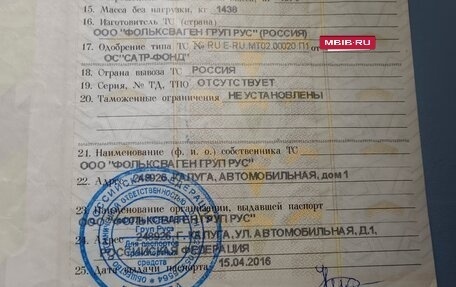 15. Масса без нагрузки, кг 1438
16. Изготовитель ТС (страна)
ООО "ФОЛЬКСВАГЕН ГРУП РУС" (РОССИЯ)
MBIB.RU
17. Одобрение типа ТС № RU E-RU.MT02.00020.П1 от
ОС"САТР-ФОНД"
18. Страна вывоза ТС РОССИЯ
19. Серия, № ТД, ТПО ОТСУТСТВУЕТ
20. Таможенные ограничения НЕ УСТАНОВЛЕНЫ
21. Наименование (ф. и. о.) собственника ТС
ООО "ФОЛЬКСВАГЕН ГРУП РУС"
22. Адрес 248926, КАЛУГА, АВТОМОБИЛЬНАЯ, дом 1
23. Наименование организации, выдавшей паспорт
ООО "ФОЛЬКСВАГЕН ГРУП РУС"
24. Адрес 248926, Г. КАЛУГА, УЛ. АВТОМОБИЛЬНАЯ, Д.1,
РОССИЙСКАЯ ФЕДЕРАЦИЯ
25. Дата выдачи паспорта 15.04.2016
Груп Рус
Для паспортов
средств